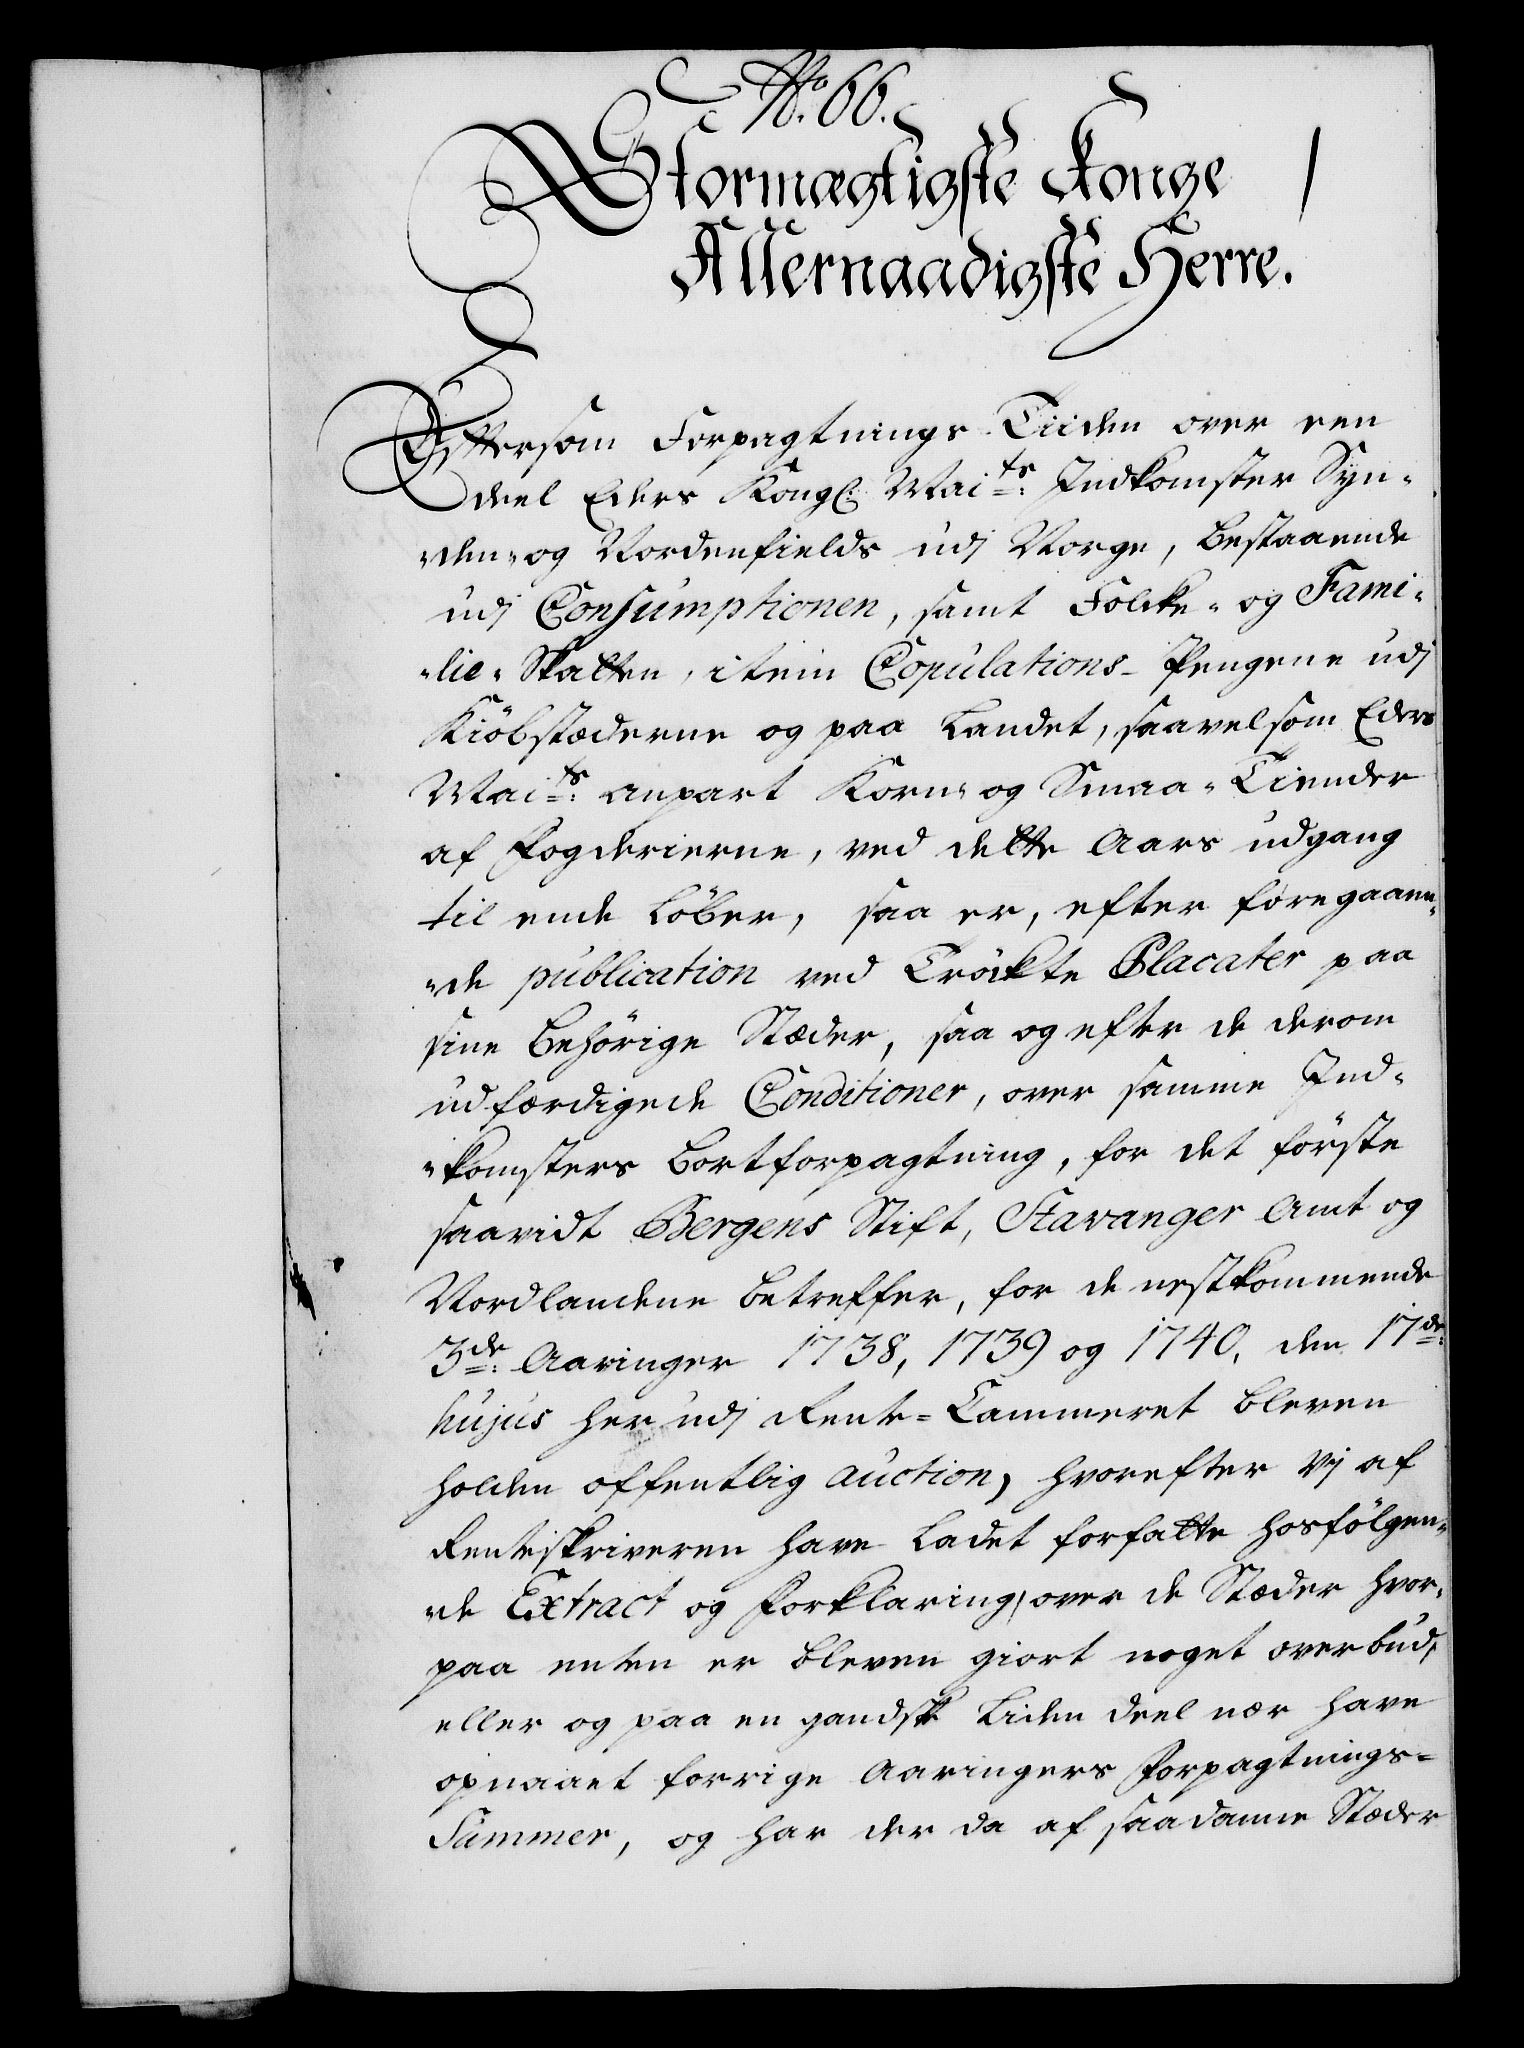 No. 66.
Stormægtigste Konge
Allernaadigste Herre.
Eftersom Forpagtnings-Tiiden over een
deel Eders Kongl: Mai:ts Indkomster Syn-
-den- og Nordenfields udj Norge, bestaaende
udj Consumptionen, samt Folke- og Fami-
-lie-Skatten, item Copulations-Pengene udj
Kiöbstæderne og paa Landet, saavelsom Eders
Mai:ts anpart Korn- og Smaa-Tiender
af Fogderierne, ved dette Aars udgang
til ende löber, saa er, efter foregaaen-
-de publication ved Tröckte Placater paa
sine behörige Stæder, saa og efter de derom
udfærdigede Conditioner, over samme Ind-
-komsters bortforpagtning, for det förste
saavidt Bergens Stift, Stavanger Amt og
Nordlandene betreffer, for de nestkommende
3de: Aaringer 1738, 1739 og 1740, den 17de:
hujus her udj Rente-Cammeret bleven
holden offentlig auction, hvorefter Vj af
Renteskriveren have ladet forfatte hosfölgen-
-de Extract og Forklaring over de Stæder hvor-
paa enten er bleven giort noget overbud,
eller og paa en gandske liden deel nær have
opnaaet forrige Aaringers Forpagtnings-
Summer, og har der da af saadanne Stæder